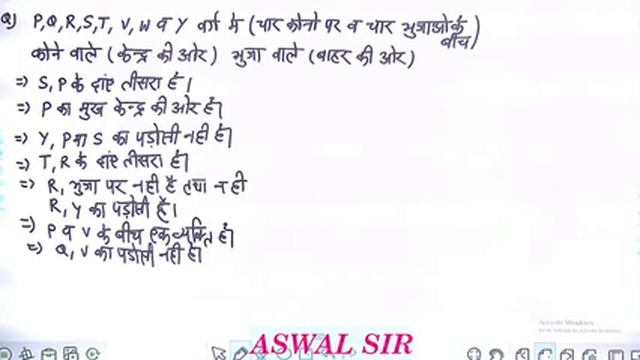 Q) P,Q,R,S,T, V, W व Y वर्ग में (चार कोनो पर व चार भुजाओ के बीच)
कोने वाले (केन्द्र की ओर) भुजा वाले (बाहर की ओर)
⇒ S, P के दांए तीसरा है।
⇒ P का मुख केन्द्र की ओर है।
⇒ Y, P या S का पड़ोसी नही है।
⇒ T, R के दांए तीसरा है।
⇒ R, भुजा पर नही है तथा न ही
R, Y का पड़ोसी है।
⇒ P व V के बीच एक व्यक्ति है।
⇒ Q, V का पड़ोसी नही है।
Activate Windows
ASWAL SIR